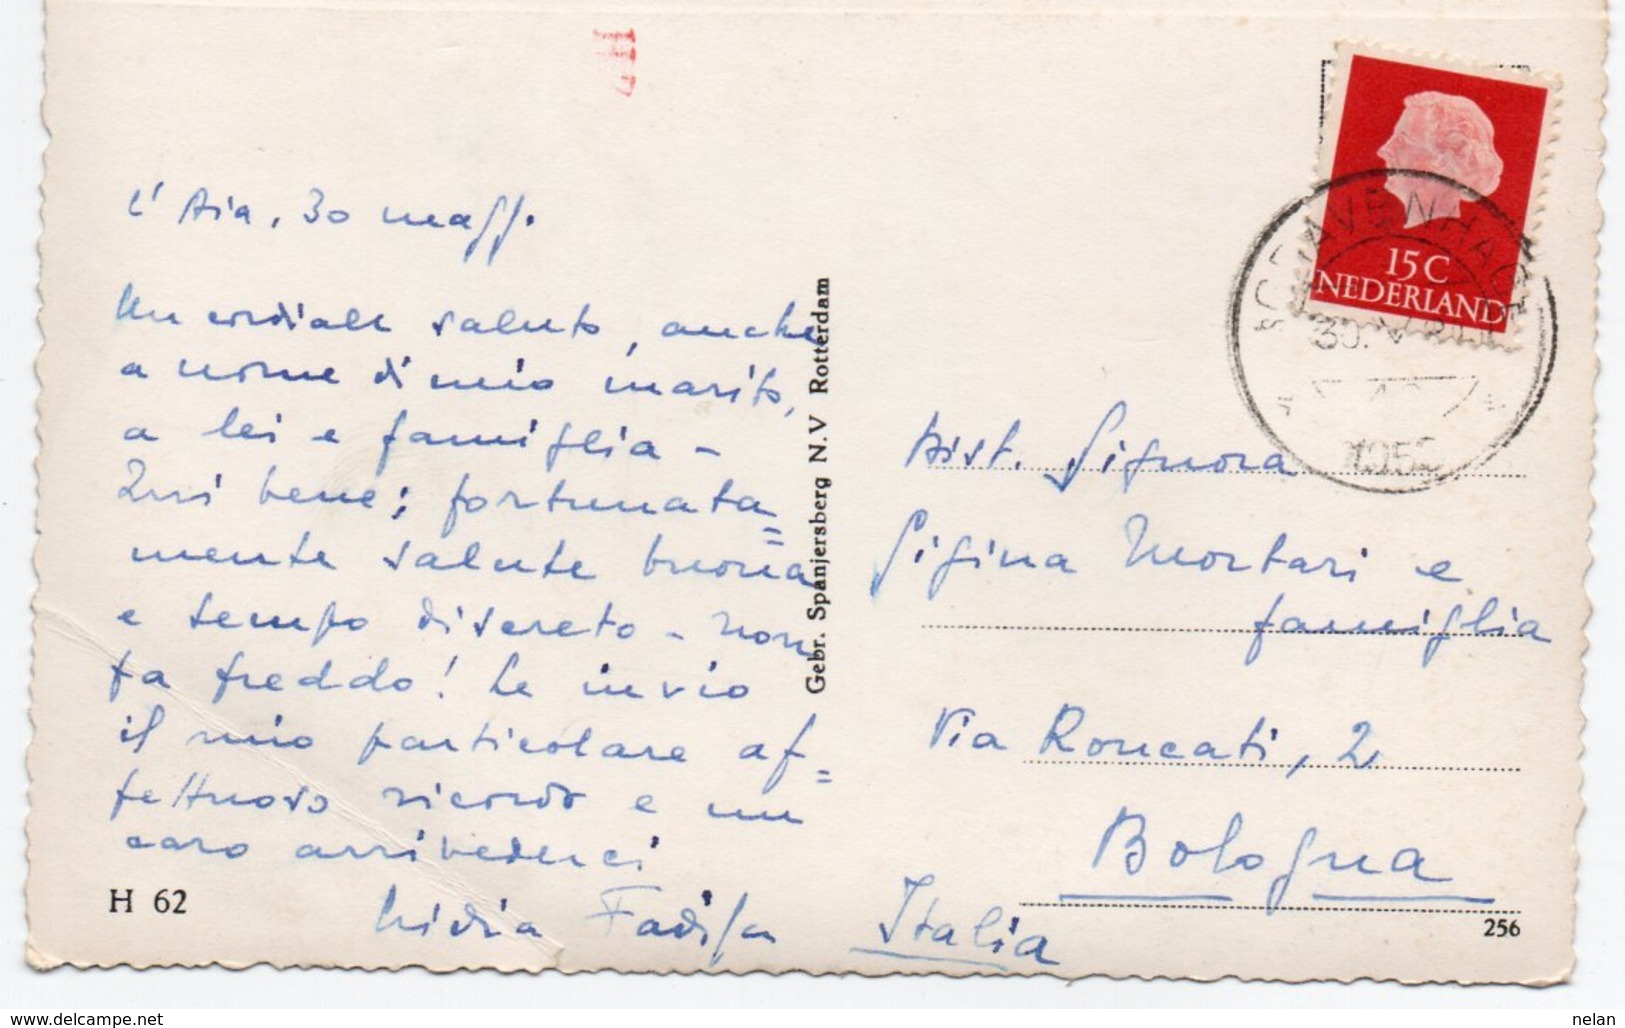 L'Aia, 30 magg.
Un cordiale saluto, anche
a nome di mio marito,
a lei e famiglia -
Qui bene; fortunata=
mente salute buona
e tempo discreto - non
fa freddo! Le invio
il mio particolare af=
fettuoso ricordo e un
caro arrivederci
Lidia
H 62
Gebr. Spanjersberg N.V Rotterdam
15 C
NEDERLAND
'S GRAVENHAGE
30. V
Dist. Signora
Gigina Mortari e
famiglia
Via Roncati, 2
Bologna
Italia
256
www.delcampe.net
nelan